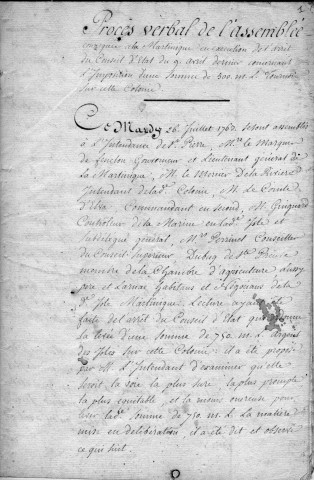 Procès verbal de l'assemblée
convoquée à la Martinique en execution de l'arrêt
du Conseil d'Etat du 9 avril dernier concernant
l'Imposition d'une Somme de 500 m. L. Tournois
sur cette Colonie
Ce Mardy 26 Juillet 1763. se sont assemblés
à L'Intendance de St. Pierre, Mrs. le Marquis
de fénelon Gouverneur et Lieutenant general de
La Martinique, M. le Mercier De la Riviere
Intendant de lad. Colonie, M. Le Comte
d'Elva Commandant en Second, M. Guignard
Controleur de la Marine en lad. Isle et
Subdelegué general, Mrs. Perrinet Conseiller
du Conseil Superieur, Dubuq de Ste. Preuve
membre de la Chambre d'agriculture,
et Larnac Habitans et Négocians de la
d. Isle Martinique. Lecture ayant été
faite de l'arrêt du Conseil d'Etat qui
la levée d'une Somme de 750. m. L. argent
des Isles sur cette Colonie: il a été proposé
par M. L'Intendant d'examiner qu'elle
seroit la voie la plus sure, la plus prompte
la plus equitable, et la moins onereuse pour
lever lad. Somme de 750. m. L. La matiere
mise en déliberation, il a été dit et observé
ce qui suit.